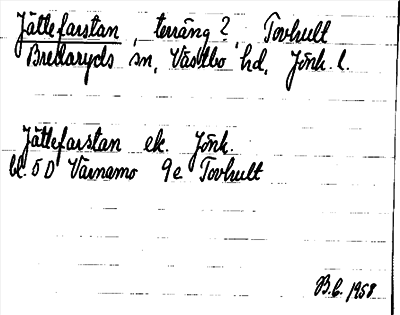 Jättefarstan, terräng? Tovhult
Bredaryds sn, Västbo hd, Jönk. l.
Jättefarstan ek. Jönk.
bl. 5D Värnamo 9e Tovhult
B.C. 1958